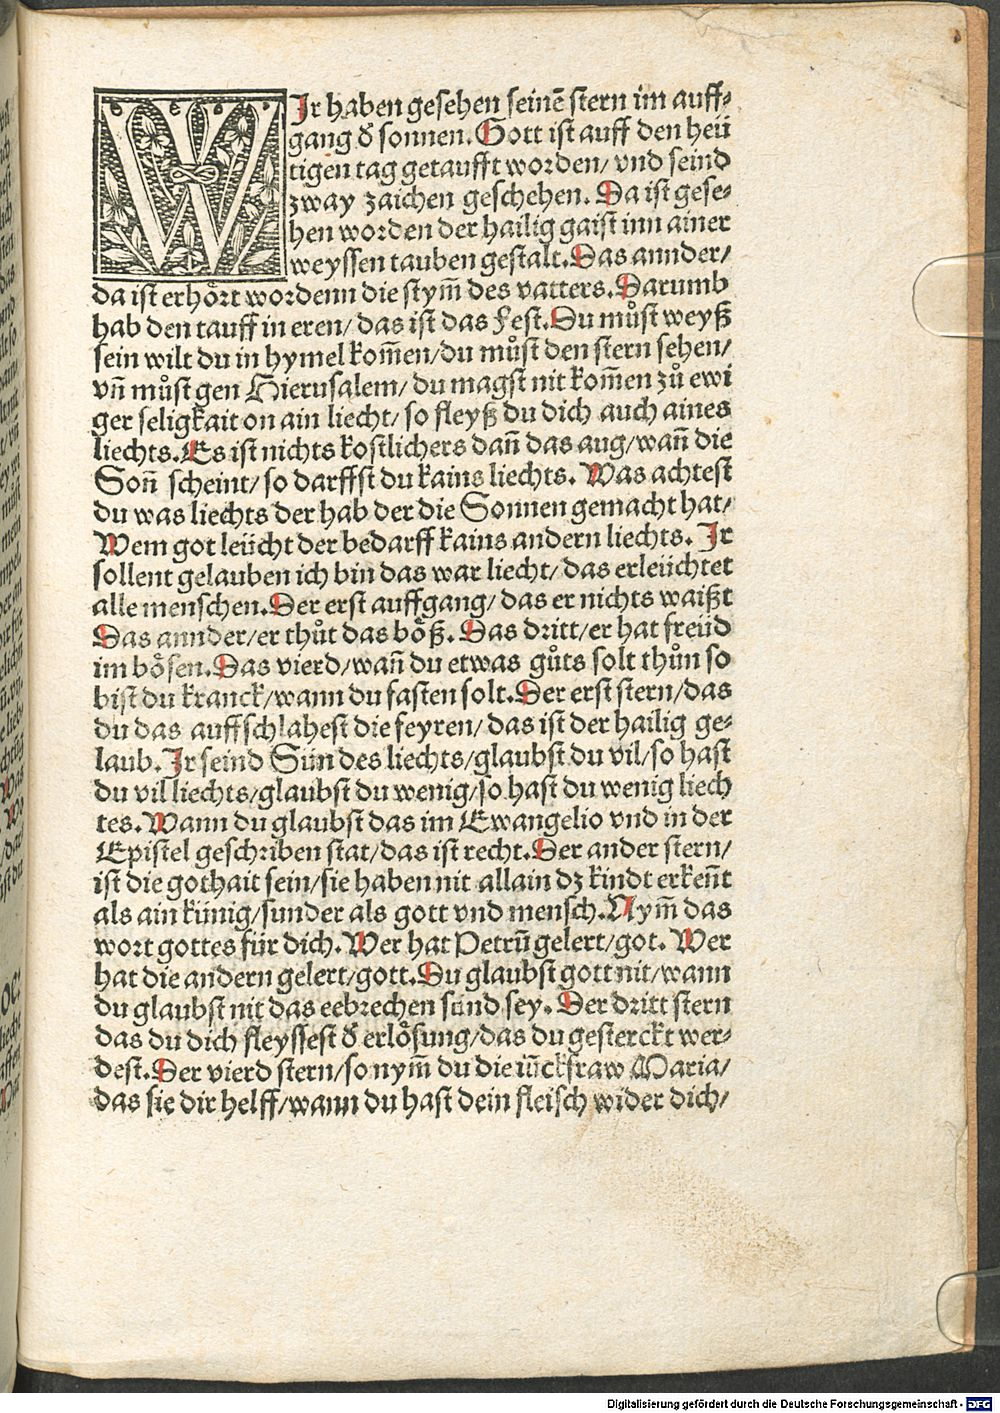 WIr haben gesehen seinē stern im auff⸗
gang d̕ sonnen. Gott ist auff den heü
tigen tag getaufft worden/ vnd seind
zway zaichen geschehen. Da ist gese⸗
hen worden der hailig gaist inn ainer
weyssen tauben gestalt. Das annder/
da ist erhoͤrt wordenn die stym̄ des vatters. Darumb
hab den tauff in eren/ das ist das Fest. Du můst weyß
sein wilt du in hymel kom̄en/ du můst den stern sehen/
vn̄ můst gen Hierusalem/ du magst nit kom̄en zů ewi
ger seligkait on ain liecht/ so fleyß du dich auch aines
liechts. Es ist nichts kostlichers dan̄ das aug/ wan̄ die
Son̄ scheint/ so darffst du kains liechts. Was achtest
du was liechts der hab der die Sonnen gemacht hat/
Wem got leücht der bedarff kains andern liechts. Ir
sollent gelauben ich bin das war liecht/ das erleüchtet
alle menschen. Der erst auffgang/ das er nichts waißt
Das annder/ er thůt das boͤß. Das dritt/ er hat freüd
im boͤsen. Das vierd/ wan̄ du etwas gůts solt thůn so
bist du kranck/ wann du fasten solt. Der erst stern/ das
du das auffschlahest die feyren/ das ist der hailig ge⸗
laub. Ir seind Sün des liechts/ glaubst du vil/ so hast
du vil liechts/ glaubst du wenig/ so hast du wenig liech
tes. Wann du glaubst das im Ewangelio vnd in der
Epistel geschriben stat/ das ist recht. Der ander stern/
ist die gothait sein/ sie haben nit allain dz kindt erken̄t
als ain künig/ sunder als gott vnd mensch. Nym̄ das
wort gottes für dich. Wer hat Petrū gelert/ got. Wer
hat die andern gelert/ gott. Du glaubst gott nit/ wann
du glaubst nit das eebrechen sünd sey. Der dritt stern
das du dich fleyssest d̕ erloͤsung/ das du gesterckt wer⸗
dest. Der vierd stern/ so nym̄ du die iūckfraw Maria/
das sie dir helff/ wann du hast dein fleisch wider dich/
Digitalisierung gefördert durch die Deutsche Forschungsgemeinschaft - DFG